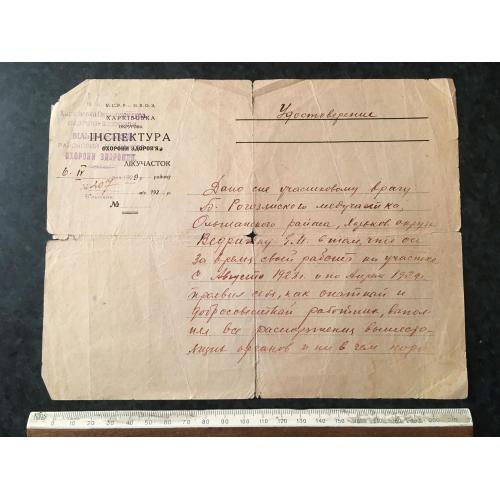 У.С.Р.Р. – Н.К.О.З.
ХАРКІВСЬКА
ОКРУГОВА
ІНСПЕКТУРА
ОХОРОНИ ЗДОРОВ'Я
ОХОРОНИ ЗДОРОВЯ
ЛІКУЧАСТОК
6. IV 1929 р. району
207
192 р.
№
Удостоверение
Дано сие участковому врачу
Б. Рогозянского медучастка,
Ольшанского района, Харьков. округа
в том, что он
за время своей работы на участке
с Августа 1927 г. и по Апрель 1929 г.
проявил себя, как опытный и
добросовестный работник, выпол-
нял все распоряжения вышесто-
ящих органов и ни в чем
0 10 20 30 40 50 60 70 80 90 100 110 120 130 140 150 160 170 180 190 200 210